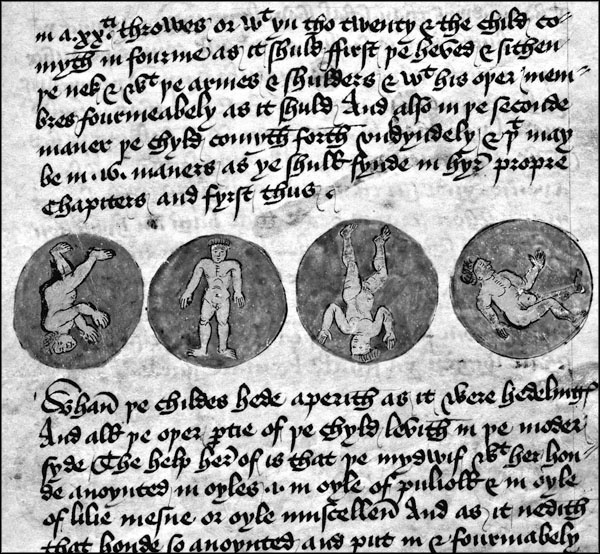 in a .xx.ti throwes or wt yn tho twenty & the child co-
myth in fourme as it shuld ffirst þe heved & sithen
þe nek & wt þe armes & shulders & wt his oþer mem-
bres fourmeabely as it shuld And also in þe seconde
maner þe chyld comyth forth vnkyndely & þt may
be in .xv. maners as ye shull fynde in hyr propre
Chapiters and fyrst thus
Whan þe childes hede aperith as it were hedeling
And all þe oþer ꝑtie of þe chyld levith in þe moder
syde The help her of is that þe mydwif wt her hon-
de anoynted in oyles .i. in oyle of pulioll & in oyle
of lilie or oyle muscellen And as it nedith
that honde so anoynted and put in & fourmabely